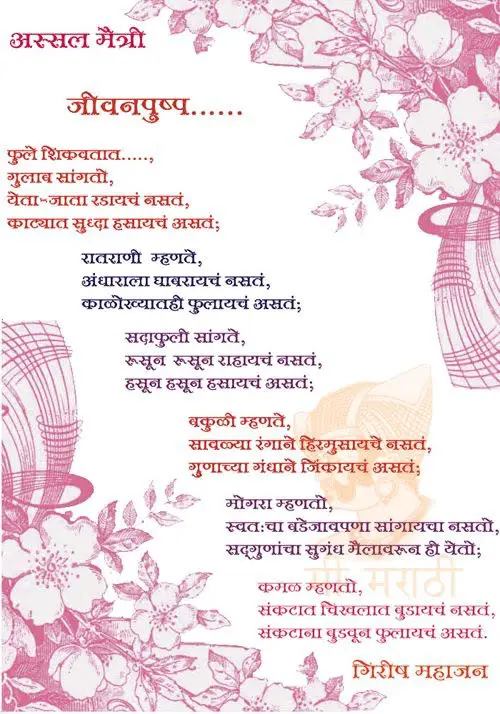 अस्सल मैत्री
जीवनपुष्प......
फुले शिकवतात.....,
गुलाब सांगतो,
येता-जाता रडायचं नसतं,
काट्यात सुध्दा हसायचं असतं;
रातराणी म्हणते,
अंधाराला घाबरायचं नसतं,
काळोख्यातही फुलायचं असतं;
सदाफुली सांगते,
रूसून रूसून राहायचं नसतं,
हसून हसून हसायचं असतं;
बकुळी म्हणते,
सावळ्या रंगाने हिरमुसायचे नसतं,
गुणाच्या गंधाने जिंकायचं असतं;
मोगरा म्हणतो,
स्वतःचा बडेजावपणा सांगायचा नसतो,
सद्गुणांचा सुगंध मैलावरून ही येतो;
मी मराठी
कमळ म्हणतो,
संकटात चिखलात बुडायचं नसतं,
संकटाना बुडवून फुलायचं असतं.
गिरीष महाजन